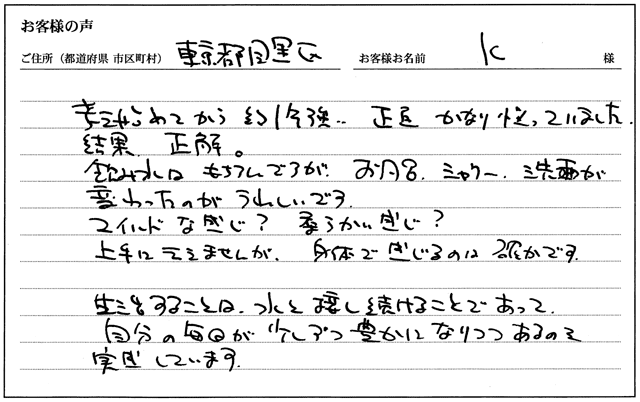 お客様の声
ご住所(都道府県 市区町村) 東京都目黒区 お客様お名前 K 様
考え始めてから約1年強… 正直 かなり迷っていました。
結果、正解。
飲み水は もちろんですが、お風呂、シャワー、洗面が
変わったのが うれしいです。
マイルドな感じ? 柔らかい感じ?
上手に言えませんが、身体で感じるのは 確かです。
生活することは、水と接し続けることであって、
自分の毎日が 少しずつ 豊かに なりつつ あるのを
実感しています。